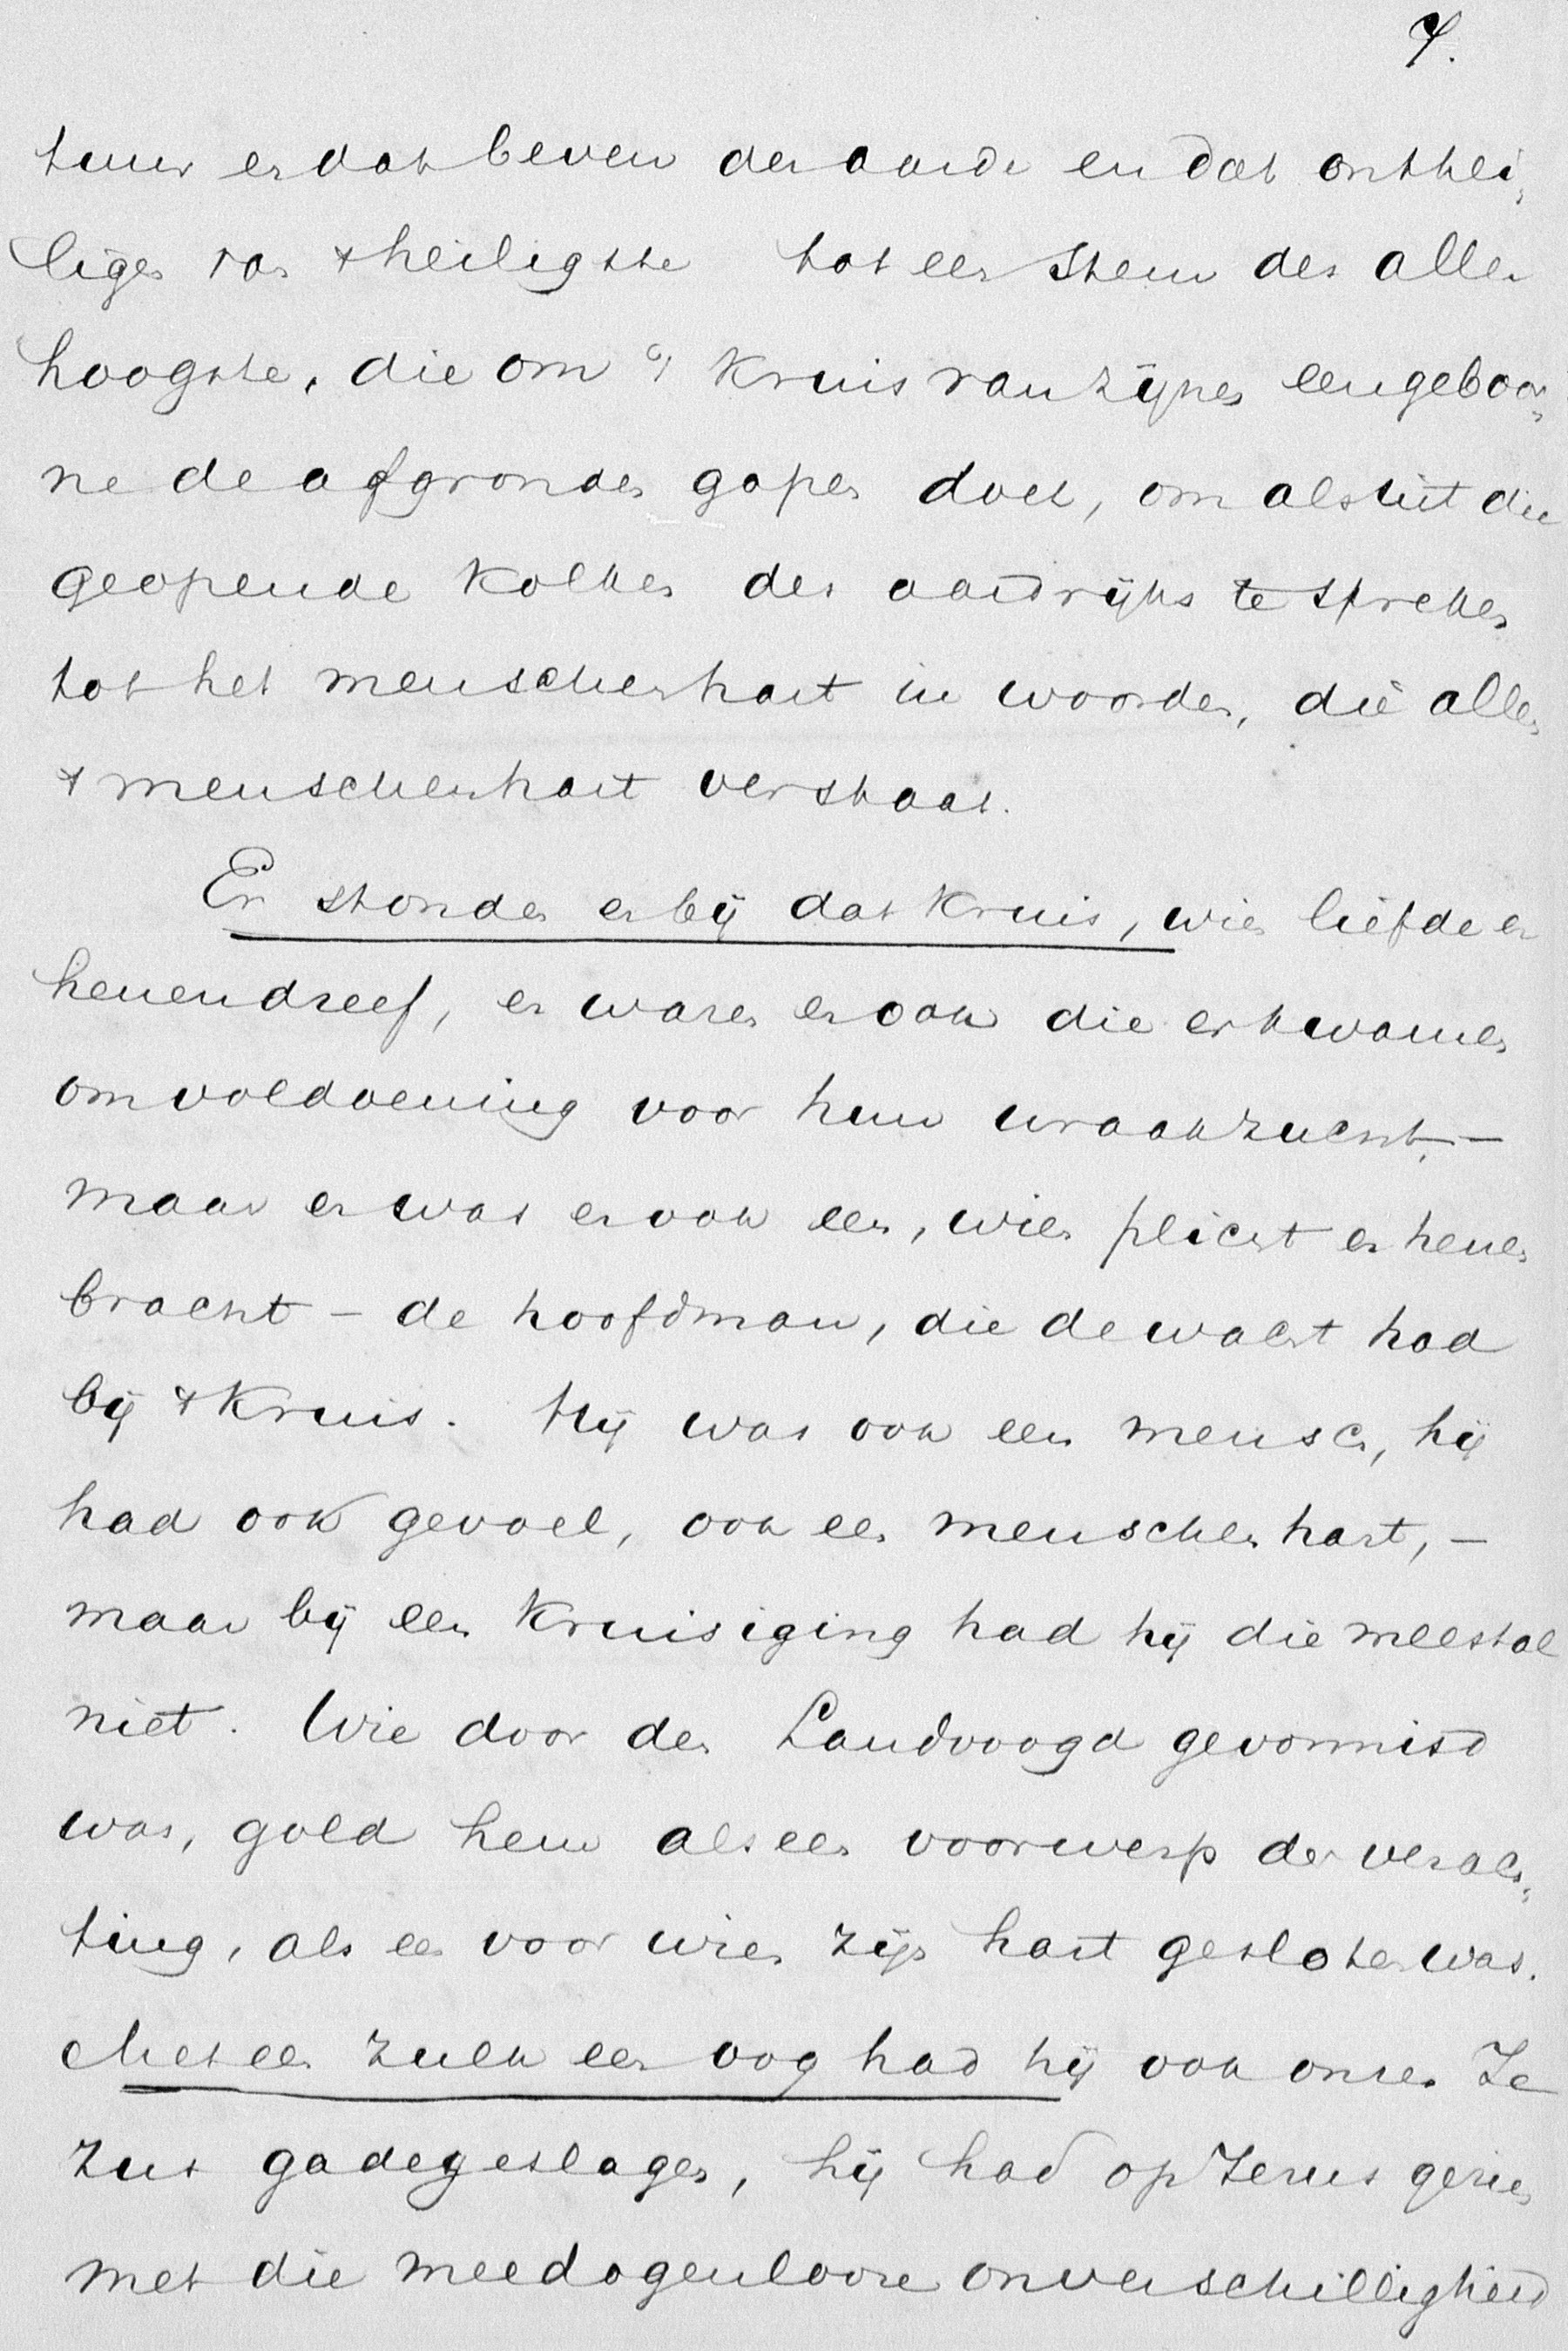 7.
tuur en dat beven der aarde en dat onthei-
ligen van 't heiligste tot een stem des aller
hoogste, die om 't kruis van zijnen eengeboor-
ne de afgronden gapen doet, om als uit die
geopende kolken des aardrijks te spreken
tot het menschenhart in woorden, die allen
't menschenhart verstaat.
Er stonden er bij dat kruis, wien liefde er
henendreef, er waren er ook die er kwamen
om voldoening voor hun wraakzucht, —
maar er was er ook een, wien plicht er henen
bracht – de hoofdman, die de wacht had
bij 't kruis. Hij was ook een mensch, hij
had ook gevoel, ook een menschenhart, —
maar bij een kruisiging had hij die meestal
niet. Wie door den Landvoogd gevonnisd
was, gold hem als een voorwerp der verach-
ting, als een voor wien zijn hart gesloten was.
Met een zulk een oog had hij ook onzen Je
zus gadegeslagen, hij had op Jezus gezien
met die meedogenlooze onverschilligheid